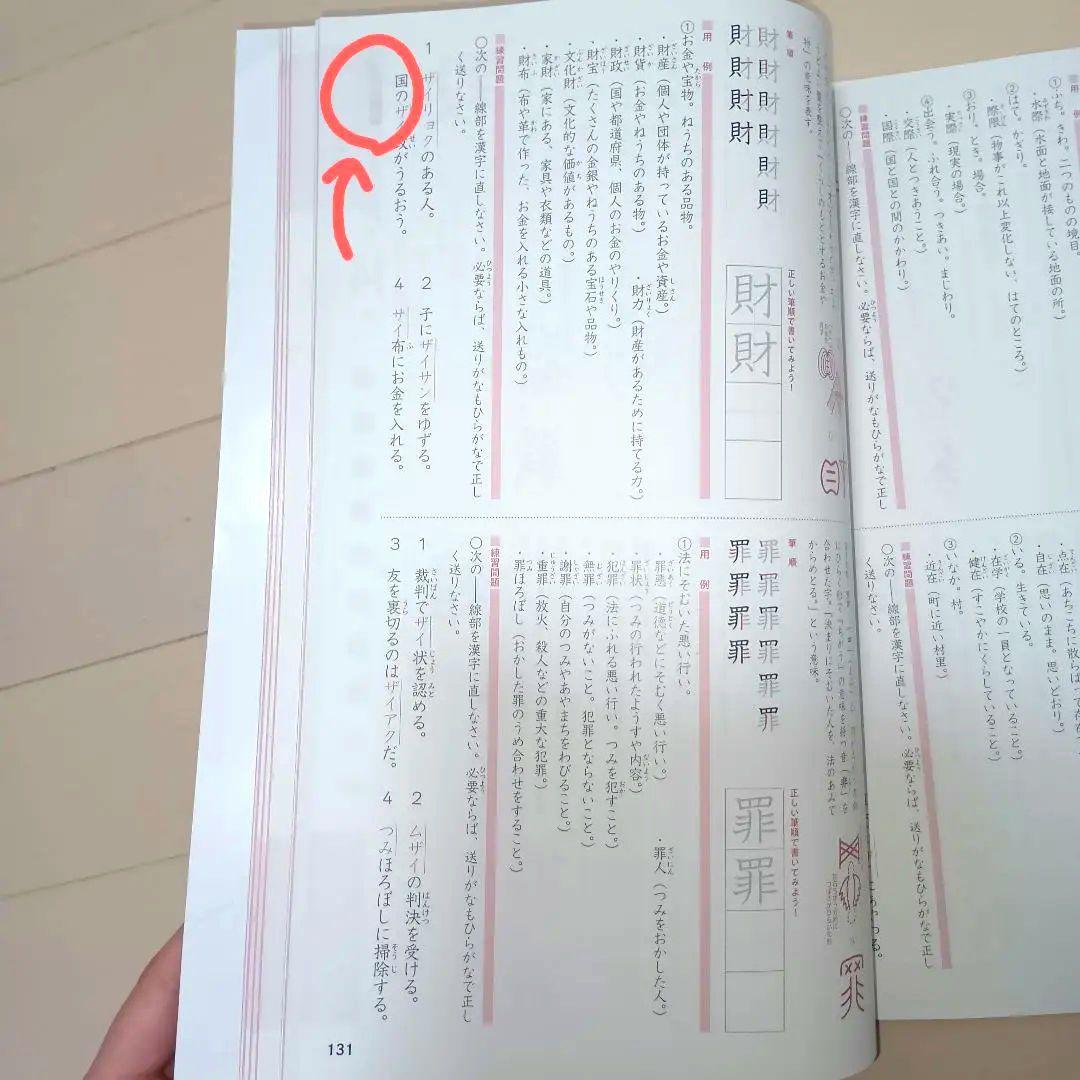 用例
①ふち。きわ。二つのものの境目。
・水際（水面と地面が接している地面の所。）
②はて。かぎり。
・際限（物事がこれ以上変化しない、はてのところ。）
③おり。とき。場合。
・実際（現実の場合。）
④出会う。ふれ合う。つきあい。まじわり。
・交際（人とつきあうこと。）
・国際（国と国との間のかかわり。）
練習問題
○次の――線部を漢字に直しなさい。必要ならば、送りがなもひらがなで正し
筆順
財財財財財財財財財財
正しい筆順で書いてみよう！
財財
用例
①お金や宝物。ねうちのある品物。
・財産（個人や団体が持っているお金や資産。）
・財力（財産があるために持てる力。）
・財貨（お金やねうちのある物。）
・財政（国や都道府県、個人のお金のやりくり。）
・財宝（たくさんの金銀やねうちのある宝石や品物。）
・文化財（文化的な価値があるもの。）
・家財（家にある、家具や衣類などの道具。）
・財布（布や革で作った、お金を入れる小さな入れもの。）
練習問題
○次の――線部を漢字に直しなさい。必要ならば、送りがなもひらがなで正し
く送りなさい。
1 ザイリョクのある人。
2 子にザイサンをゆずる。
国のザイ政がうるおう。
4 サイ布にお金を入れる。
・点在（あちこちに散らば
・自在（思いのまま。思いどおり。）
②いる。生きている。
・在学（学校の一員となっていること。）
・健在（すこやかにくらしていること。）
③いなか。村。
・近在（町に近い村里。）
練習問題
○次の――線部を漢字に直しなさい。必要ならば、送りがなもひらがなで正し
く送りなさい。
合わせた字。「決まりにそむいた人を、法のあみで
からめとる。」という意味。
筆順
罪罪罪罪罪罪罪罪罪罪
正しい筆順で書いてみよう！
罪罪
用例
①法にそむいた悪い行い。
・罪悪（道徳などにそむく悪い行い。）
・罪人（つみをおかした人。）
・罪状（つみの行われたようすや内容。）
・犯罪（法にふれる悪い行い。つみを犯すこと。）
・無罪（つみがないこと。犯罪とならないこと。）
・謝罪（自分のつみやあやまちをわびること。）
・重罪（放火、殺人などの重大な犯罪。）
・罪ほろぼし（おかした罪のうめ合わせをすること。）
練習問題
○次の――線部を漢字に直しなさい。必要ならば、送りがなもひらがなで正し
く送りなさい。
1 裁判でザイ状を認める。
2 ムザイの判決を受ける。
3 友を裏切るのはザイアクだ。
4 つみほろぼしに掃除する。
131